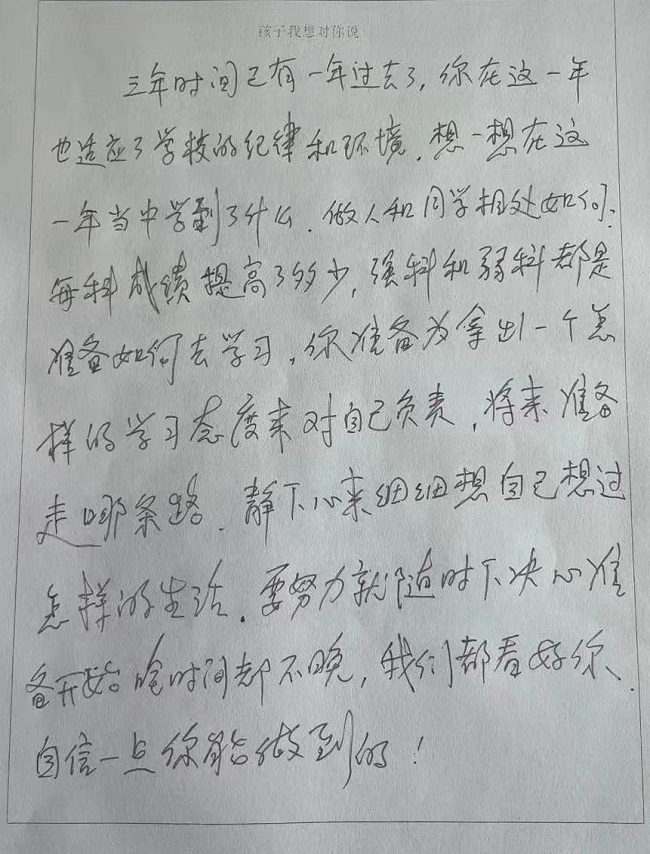 孩子我想对你说
三年时间已有一年过去了，你在这一年
也适应了学校的纪律和环境．想一想在这
一年当中学到了什么．做人和同学相处如何．
每科成绩提高了多少，强科和弱科都是
准备如何去学习，你准备为拿出一个怎
样的学习态度来对自己负责，将来准备
走哪条路．静下心来细细想自己想过
怎样的生活．要努力就随时下决心准
备开始啥时间都不晚，我们都看好你．
自信一点你能做到的！